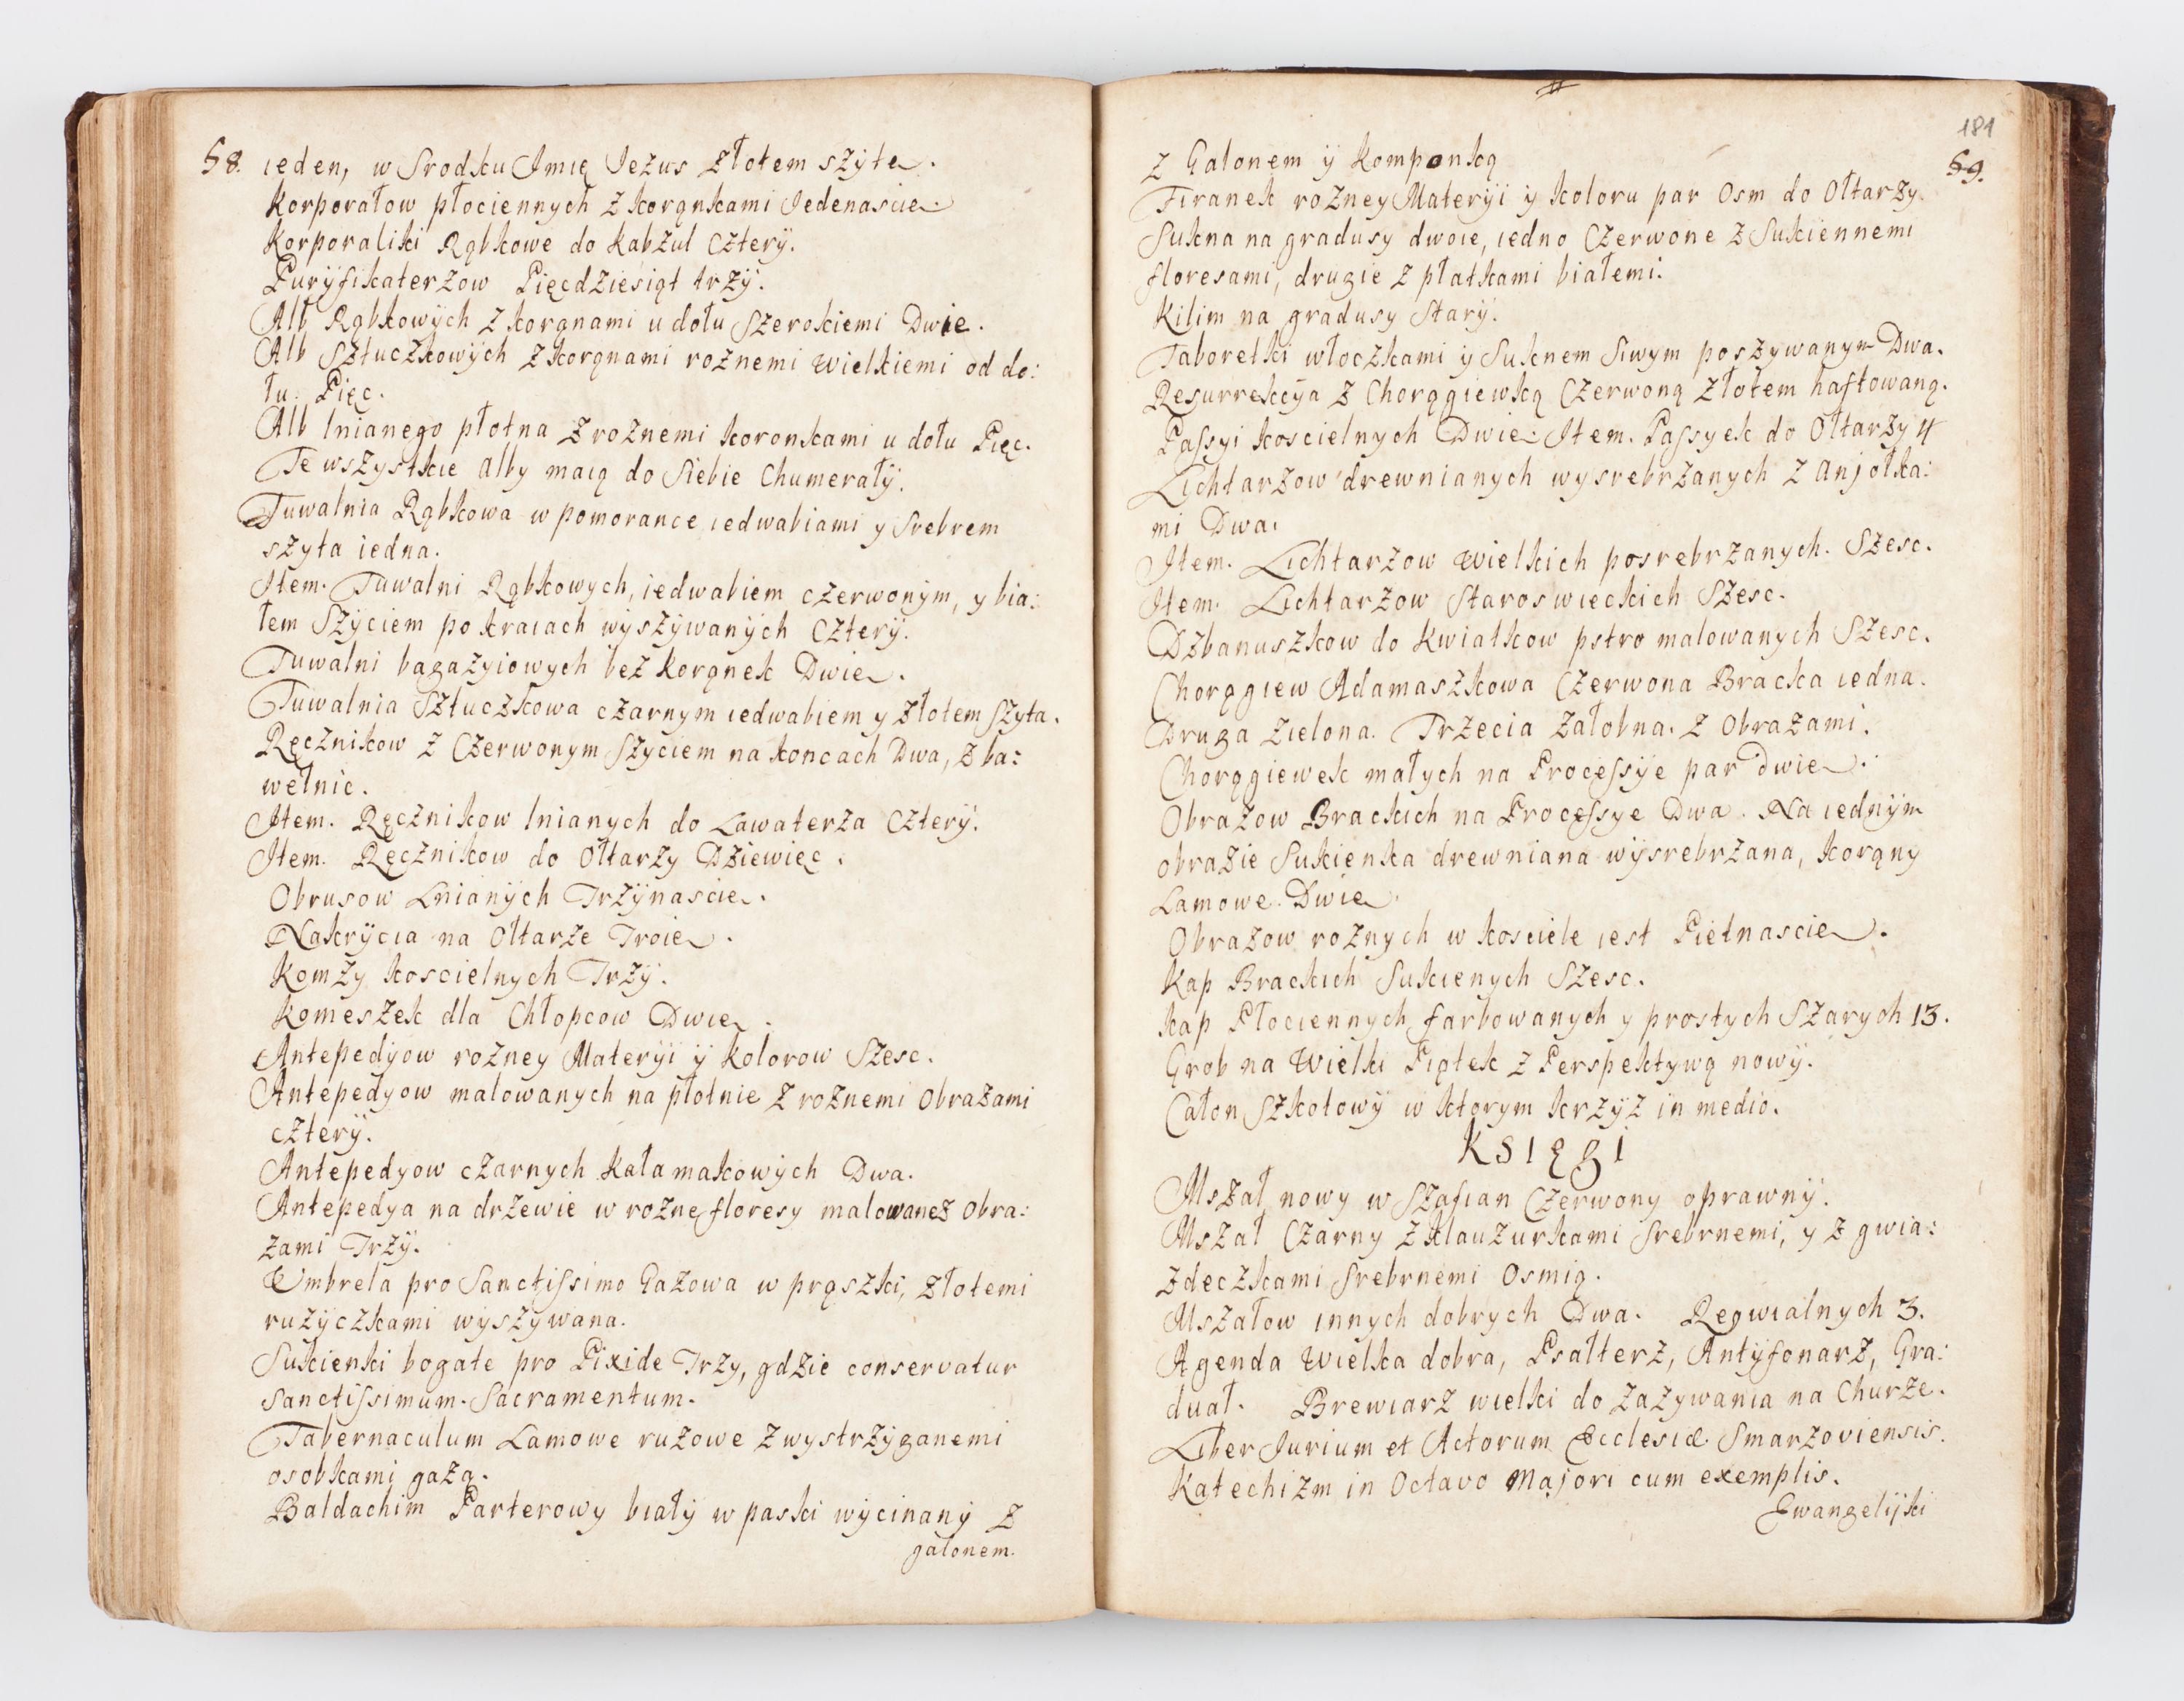 58. ieden, w Srodku Imię Jezus Złotem szyte.
Korporałow płociennych z korąnkami Jedenascie.
Korporaliki Rąbkowe do Kabzul Cztery.
Puryfikaterzow Pięcdziesiąt trzy.
Alb Rąbkowych z korąnami u dołu Szerokiemi Dwie.
Alb Sztuczkowych z korąnami roznemi wielkiemi od do:
łu. Pięc.
Alb lnianego płotna z roznemi koronkami u dołu Pięc.
Te wszystkie Alby maią do Siebie Chumerały.
Tuwalnia Rąbkowa w pomorance iedwabiami y Srebrem
szyta iedna.
Item. Tuwalni Rąbkowych, iedwabiem czerwonym, y bia:
łem Szyciem po kraiach wyszywanych Cztery.
Tuwalni bagazyiowych bez korąnek Dwie.
Tuwalnia Sztuczkowa czarnym iedwabiem y złotem szyta.
Ręcznikow z Czerwonym Szyciem na koncach Dwa, z ba:
wełnic.
Item. Ręcznikow lnianych do Lawaterza Cztery.
Item. Ręcznikow do Ołtarzy Dziewięc.
Obrusow Lnianych Trzynascie.
Nakrycia na Ołtarze Troie.
Komzy koscielnych Trzy.
Komeszek dla Chłopcow Dwie.
Antepedyow rozney Materyi y kolorow Szesc.
Antepedyow malowanych na płotnie z roznemi Obrazami
cztery.
Antepedyow czarnych Kałamakowych Dwa.
Antepedya na drzewie w rozne floresy malowane z Obra:
zami Trzy.
Umbrela pro Sanctissimo Gazowa w prąszki, złotemi
ruzyczkami wyszywana.
Sukienki bogate pro Pixide Trzy, gdzie conservatur
Sanctissimum. Sacramentum.
Tabernaculum Lamowe ruzowe z wystrzyganemi
osobkami gazą.
Baldachim Parterowy biały w paski wycinany z
galonem.
181
59.
z Galonem y komponką
Firanek rozney Materyi y koloru par Osm do Ołtarzy.
Sukna na gradusy dwoie, iedno Czerwone z Sukiennemi
floresami, drugie z płatkami białemi.
Kilim na gradusy Stary.
Taboretki włoczkami y Suknem Siwym poszywanym Dwa.
Resurrekcya z Chorągiewką Czerwoną złotem haftowaną.
Passyi koscielnych Dwie. Item. Passyek do Ołtarzy 4
Lichtarzow drewnianych wysrebrzanych z Anjołka:
mi Dwa.
Item. Lichtarzow Wielkich posrebrzanych. Szesc.
Item. Lichtarzow Staroswieckich Szesc.
Dzbanuszkow do Kwiatkow pstro malowanych Szesc.
Chorągiew Adamaszkowa Czerwona Bracka iedna.
Druga Zielona. Trzecia Załobna. z Obrazami.
Chorągiewek małych na Processye par dwie.
Obrazow Brackich na Processye Dwa. Na iednym
obrazie Sukienka drewniana wysrebrzana, korąny
Lamowe. Dwie
Obrazow roznych w kosciele iest Pietnascie.
Kap Brackich Sukienych Szesc.
Kap Płociennych farbowanych y prostych Szarych 13.
Grob na Wielki Piątek z Perspektywą nowy.
Całon Szkołowy w ktorym krzyz in medio.
KSIĘGI
Mszał nowy w Szafian Czerwony oprawny.
Mszał Czarny z klauzurkami Srebrnemi, y z gwia:
zdeczkami Srebrnemi Osmią.
Mszałow innych dobrych Dwa. Reqwialnych 3.
Agenda Wielka dobra, Psałterz, Antyfonarz, Gra:
duał. Brewiarz wielki do Zazywania na Churze.
Liber Jurium et Actorum Ecclesiæ Smarzoviensis.
Katechizm in Octavo Majori cum exemplis.
Ewangelijki